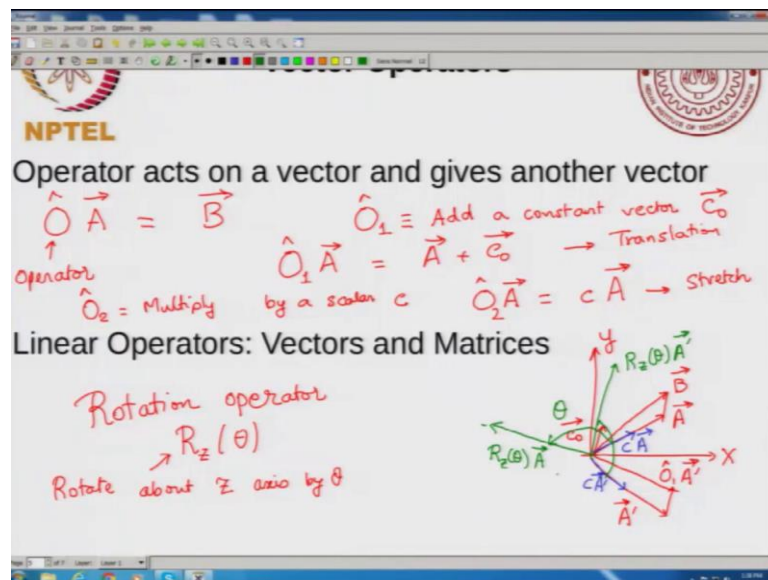 Vector Operators
NPTEL
Operator acts on a vector and gives another vector
Ô A⃗ = B⃗
Ô₁ ≡ Add a constant vector C₀⃗
operator
Ô₁ A⃗ = A⃗ + C₀⃗ → Translation
Ô₂ = Multiply by a scalar c
Ô₂A⃗ = c A⃗ → Stretch
Linear Operators: Vectors and Matrices
Rotation operator
R_z(θ)
Rotate about z axis by θ
y
R_z(θ)A⃗'
B⃗
A⃗
θ
C₀⃗
cA⃗
R_z(θ)A⃗
X
Ô₁A⃗'
cA⃗'
A⃗'